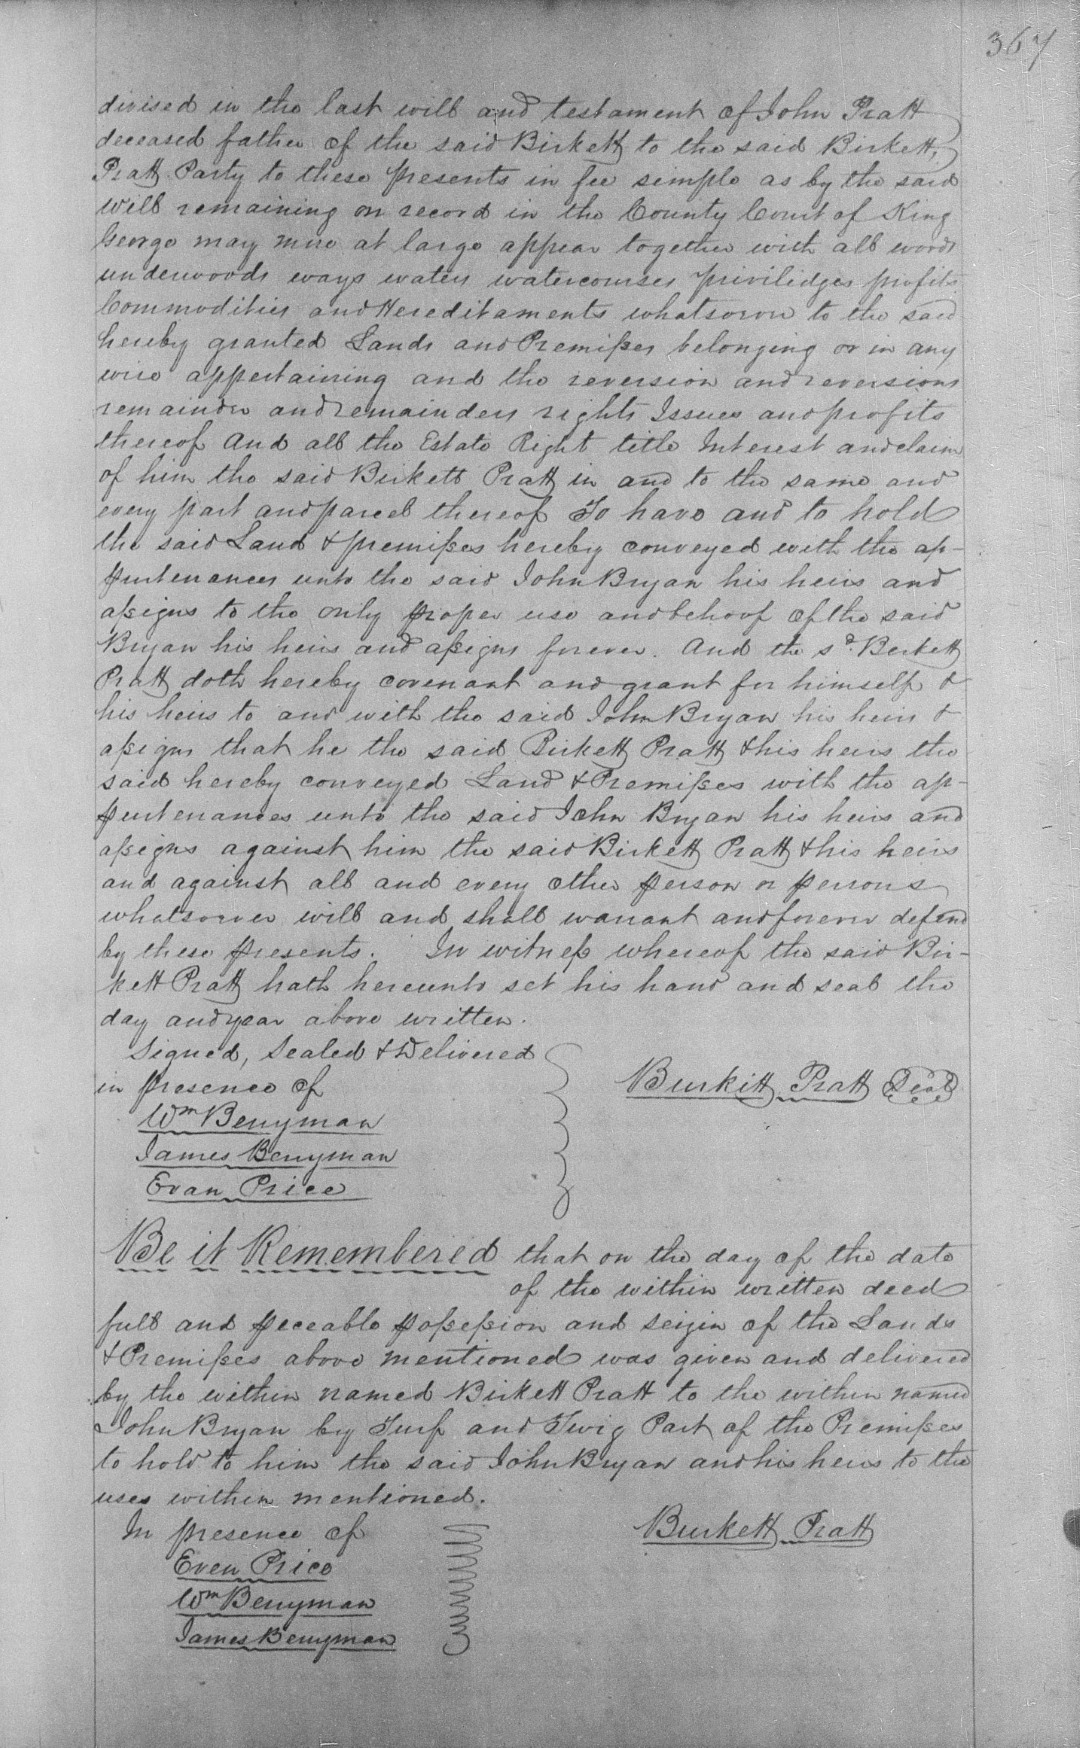 367
divised in the last will and testament of John Pratt
deceased father of the said Birkett to the said Birkett
Pratt Party to these presents in fee simple as by the said
Will remaining on record in the County Court of King
George may more at large appear together with all woods
underwoods ways waters watercourses priviledges profits
Commodities and Hereditaments whatsoever to the said
hereby granted Lands and Premißes belonging or in any
wise appertaining and the reversion and reversions
remainder and remainders rights Issues and profits
thereof And all the Estate Right title Interest and claim
of him the said Birkett Pratt in and to the same and
every part and parcel thereof To have and to hold
the said Land & premißes hereby conveyed with the ap-
purtenances unto the said John Bryan his heirs and
aßigns to the only proper use and behoof of the said
Bryan his heirs and aßigns forever. And the sd. Berkett
Pratt doth hereby covenant and grant for himself &
his heirs to and with the said John Bryan his heirs &
aßigns that he the said Birkett Pratt & his heirs the
said hereby conveyed Land & Premißes with the ap-
purtenances unto the said John Bryan his heirs and
aßigns against him the said Birkett Pratt & his heirs
and against all and every other person or persons
whatsoever will and shall warrant and forever defend
by these presents. In witneß whereof the said Bir-
kett Pratt hath hereunto set his hand and seal the
day and year above written.
Signed, Sealed & Delivered
in presence of
Burkitt Pratt Seal
Wm Berryman
James Berryman
Evan Price
Be it Remembered that on the day of the date
of the within written deed
full and peceable poßeßion and seizin of the Lands
& Premißes above mentioned was given and delivered
by the within named Birkett Pratt to the within named
John Bryan by Turf and Twig Part of the Premißes
to hold to him the said John Bryan and his heirs to the
uses within mentioned.
In presence of
Burkett Pratt
Even Price
Wm Berryman
James Berryman